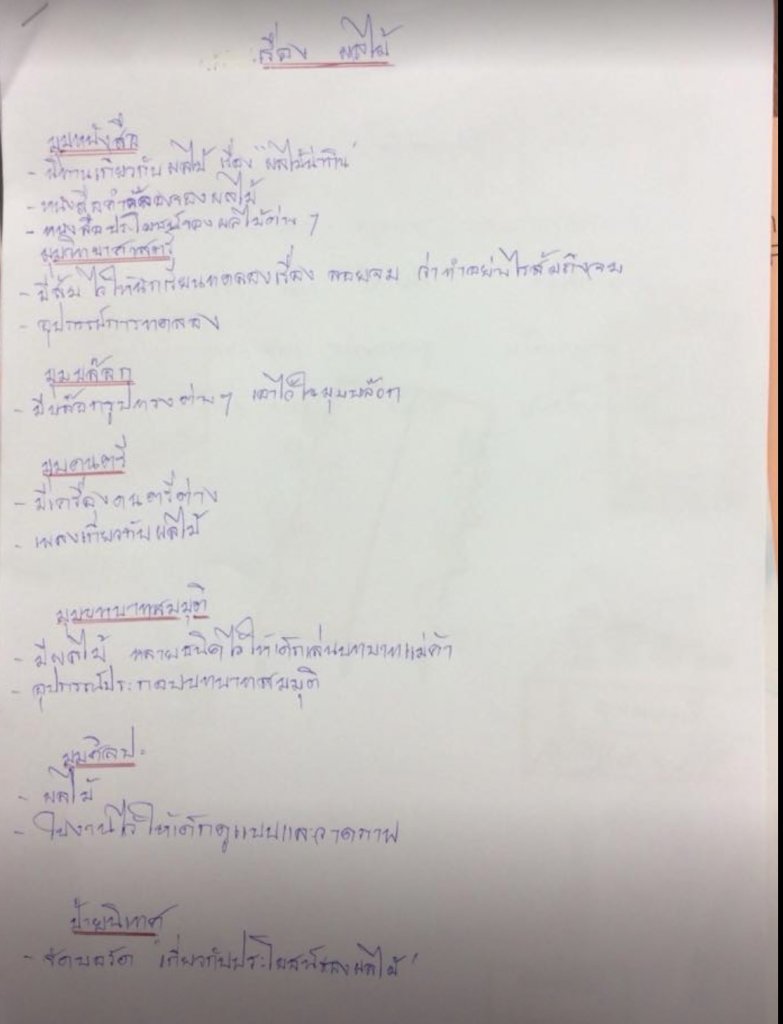 เรื่อง ผลไม้
มุมหนังสือ
- นิทานเกี่ยวกับผลไม้ เรื่อง "ผลไม้น่ากิน"
- หนังสือคำคล้องจองผลไม้
- หนังสือประโยชน์ของผลไม้ต่าง ๆ
มุมวิทยาศาสตร์
- มีส้มไว้ให้นักเรียนทดลองเรื่อง ลอยจม ว่าทำอย่างไรส้มถึงจม
- อุปกรณ์การทดลอง
มุมบล็อก
- มีบล็อกรูปทรงต่าง ๆ เอาไว้ในมุมบล็อก
มุมดนตรี
- มีเครื่องดนตรีต่าง
- เพลงเกี่ยวกับผลไม้
มุมบทบาทสมมุติ
- มีผลไม้ หลายชนิดไว้ให้เด็กเล่นบทบาทแม่ค้า
- อุปกรณ์ประกอบบทบาทสมมุติ
มุมศิลปะ
- ผลไม้
- ใบงานไว้ให้เด็กดูแบบและวาดภาพ
ป้ายนิเทศ
- จัดบอร์ด เกี่ยวกับประโยชน์ของผลไม้